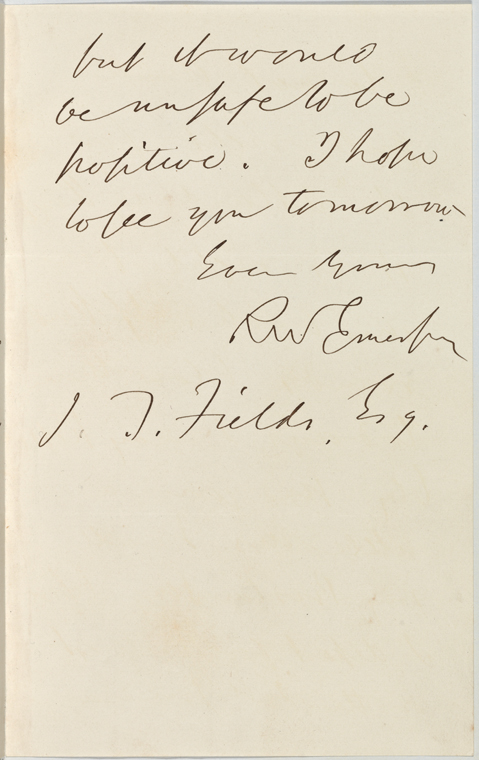 but it would
be unsafe to be
positive. I hope
to see you tomorrow.
Ever Yours
RW Emerson
J. T. Fields, Esq.